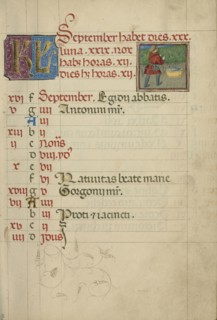 KL September habet dies. xxx.
luna. xxix. nox
habet horas. xij.
dies hr horas. xij.
xvi f September. Egidij abbatis.
v g iiii Antonini mr̃.
A iii
xiii b ii
ii c Nonis
d viii. id9
x e vii
f vi Natiuitas beate marie
xviii g v Gorgonij mr̃.
vii A iiii
b iii Proti et iacincti.
xv c ii
iiii d Idus